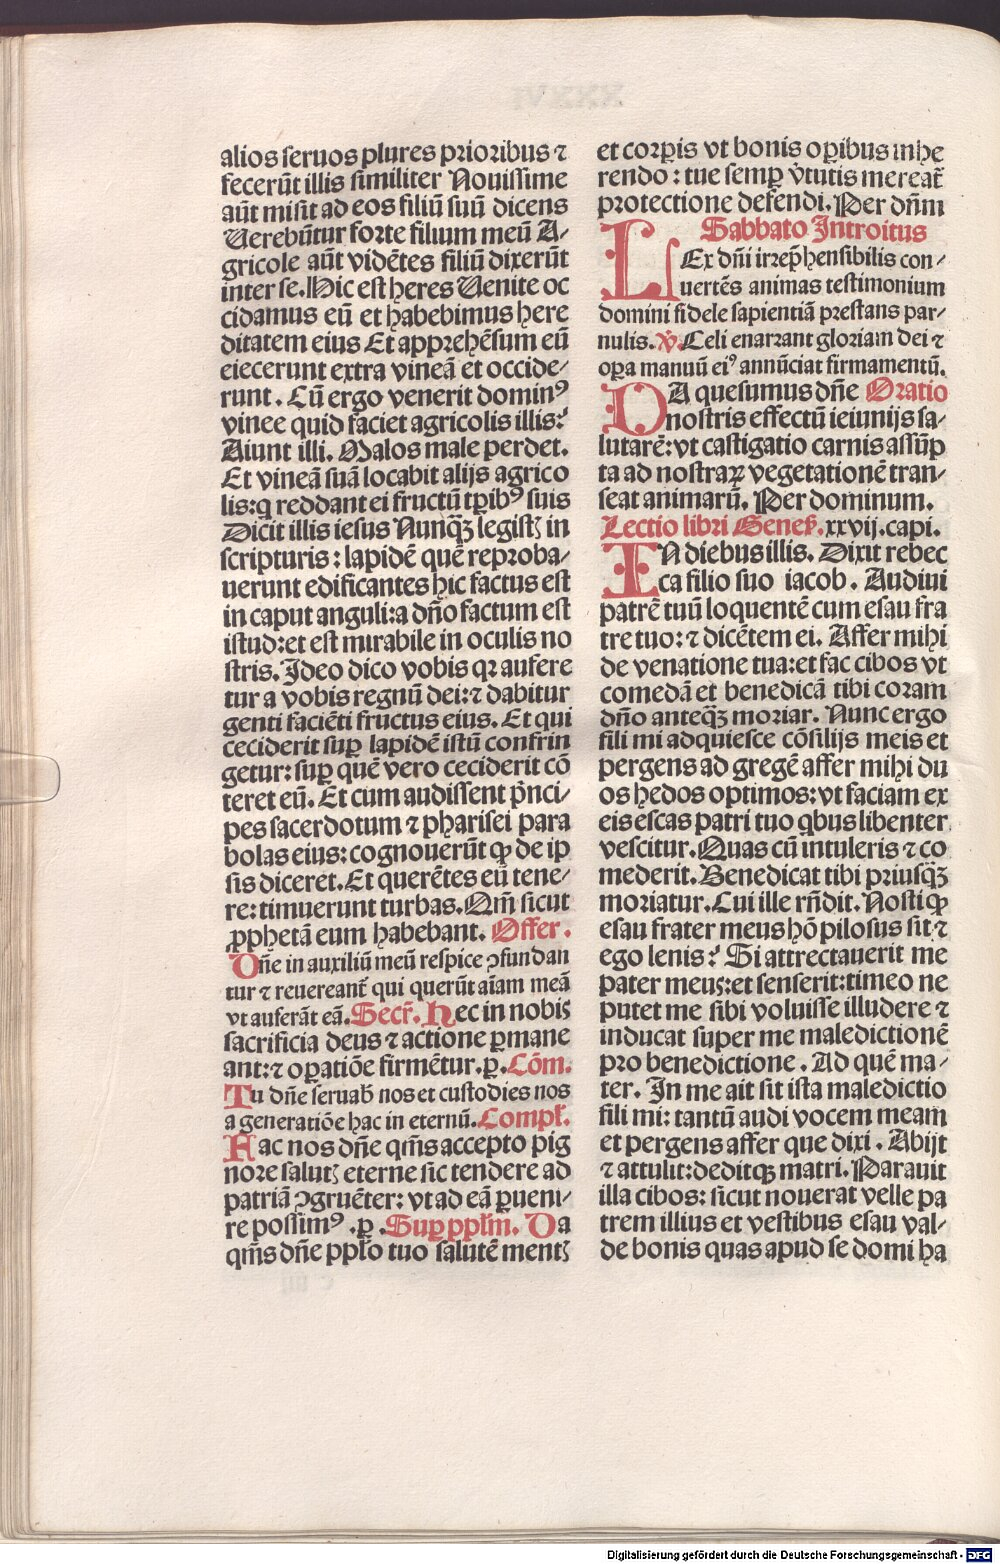 alios seruos plures prioribus ⁊
fecerūt illis similiter Nouissime
aūt misit ad eos filiū suū dicens
Uerebūtur forte filium meū A-
gricole aūt vidētes filiū dixerūt
inter se. Hic est heres Uenite oc
cidamus eū et habebimus here
ditatem eius Et apprehēsum eū
eiecerunt extra vineā et occide-
runt. Cū ergo venerit dominꝰ
vinee quid faciet agricolis illis?
Aiunt illi. Malos male perdet.
Et vineā suā locabit alijs agrico
lis: q̄ reddant ei fructū tꝑibꝰ suis
Dicit illis iesus Nunqꝫ legistꝫ in
scripturis: lapidē quē reproba-
uerunt edificantes hic factus est
in caput anguli: a dño factum est
istud: et est mirabile in oculis no
stris. Ideo dico vobis qꝛ aufere
tur a vobis regnū dei: ⁊ dabitur
genti faciēti fructus eius. Et qui
ceciderit suꝑ lapidē istū confrin
getur: suꝑ quē vero ceciderit cō
teret eū. Et cum audissent p̄nci-
pes sacerdotum ⁊ pharisei para
bolas eius: cognouerūt ꝙ de ip
sis diceret. Et querētes eū tene-
re: timuerunt turbas. Qm̄ sicut
ꝓphetā eum habebant. Offer.
Dñe in auxiliū meū respice ꝯfundan
tur ⁊ reuereant̄ qui querūt aīam meā
vt auferāt eā. Secr̄. Hec in nobis
sacrificia deus ⁊ actione ꝑmane
ant: ⁊ oꝑatiōe firmētur. ꝑ. Cōm.
Tu dñe seruab̄ nos et custodies nos
a generatiōe hac in eternū. Compl̄.
Fac nos dñe qm̄s accepto pig
nore salutꝫ eterne sic tendere ad
patriā ꝯgruēter: vt ad eā ꝑueni-
re possimꝰ. ꝑ. Suꝑ ppl̄m. Da
qm̄s dñe ppl̄o tuo salutē mentꝫ
et corꝑis vt bonis oꝑibus inhe
rendo: tue semꝑ v̄tutis mereat̄
protectione defendi. Per dn̄m
Sabbato Introitus
LEx dn̄i irrep̄hensibilis con-
uertēs animas testimonium
domini fidele sapientiā prestans par-
nulis. ℣. Celi enarrant gloriam dei ⁊
oꝑa manuū eiꝰ annūciat firmamentū.
DA quesumus dñe Oratio
nostris effectū ieiunijs sa-
lutarē: vt castigatio carnis assūp
ta ad nostraꝝ vegetationē tran-
seat animarū. Per dominum.
Lectio libri Genes̄. xxvij. capi.
IN diebus illis. Dixit rebec
ca filio suo iacob. Audiui
patrē tuū loquentē cum esau fra
tre tuo: ⁊ dicētem ei. Affer mihi
de venatione tua: et fac cibos vt
comedā et benedicā tibi coram
dño anteqꝫ moriar. Nunc ergo
fili mi adquiesce cōsilijs meis et
pergens ad gregē affer mihi du
os hedos optimos: vt faciam ex
eis escas patri tuo q̄bus libenter
vescitur. Quas cū intuleris ⁊ co
mederit. Benedicat tibi priusqꝫ
moriatur. Cui ille rn̄dit. Nosti ꝙ
esau frater meus hō pilosus sit ⁊
ego lenis? Si attrectauerit me
pater meus: et senserit: timeo ne
putet me sibi voluisse illudere ⁊
inducat super me maledictionē
pro benedictione. Ad quē ma-
ter. In me ait sit ista maledictio
fili mi: tantū audi vocem meam
et pergens affer que dixi. Abijt
⁊ attulit: deditqꝫ matri. Parauit
illa cibos: sicut nouerat velle pa
trem illius et vestibus esau val-
de bonis quas apud se domi ha
Digitalisierung gefördert durch die Deutsche Forschungsgemeinschaft - DFG